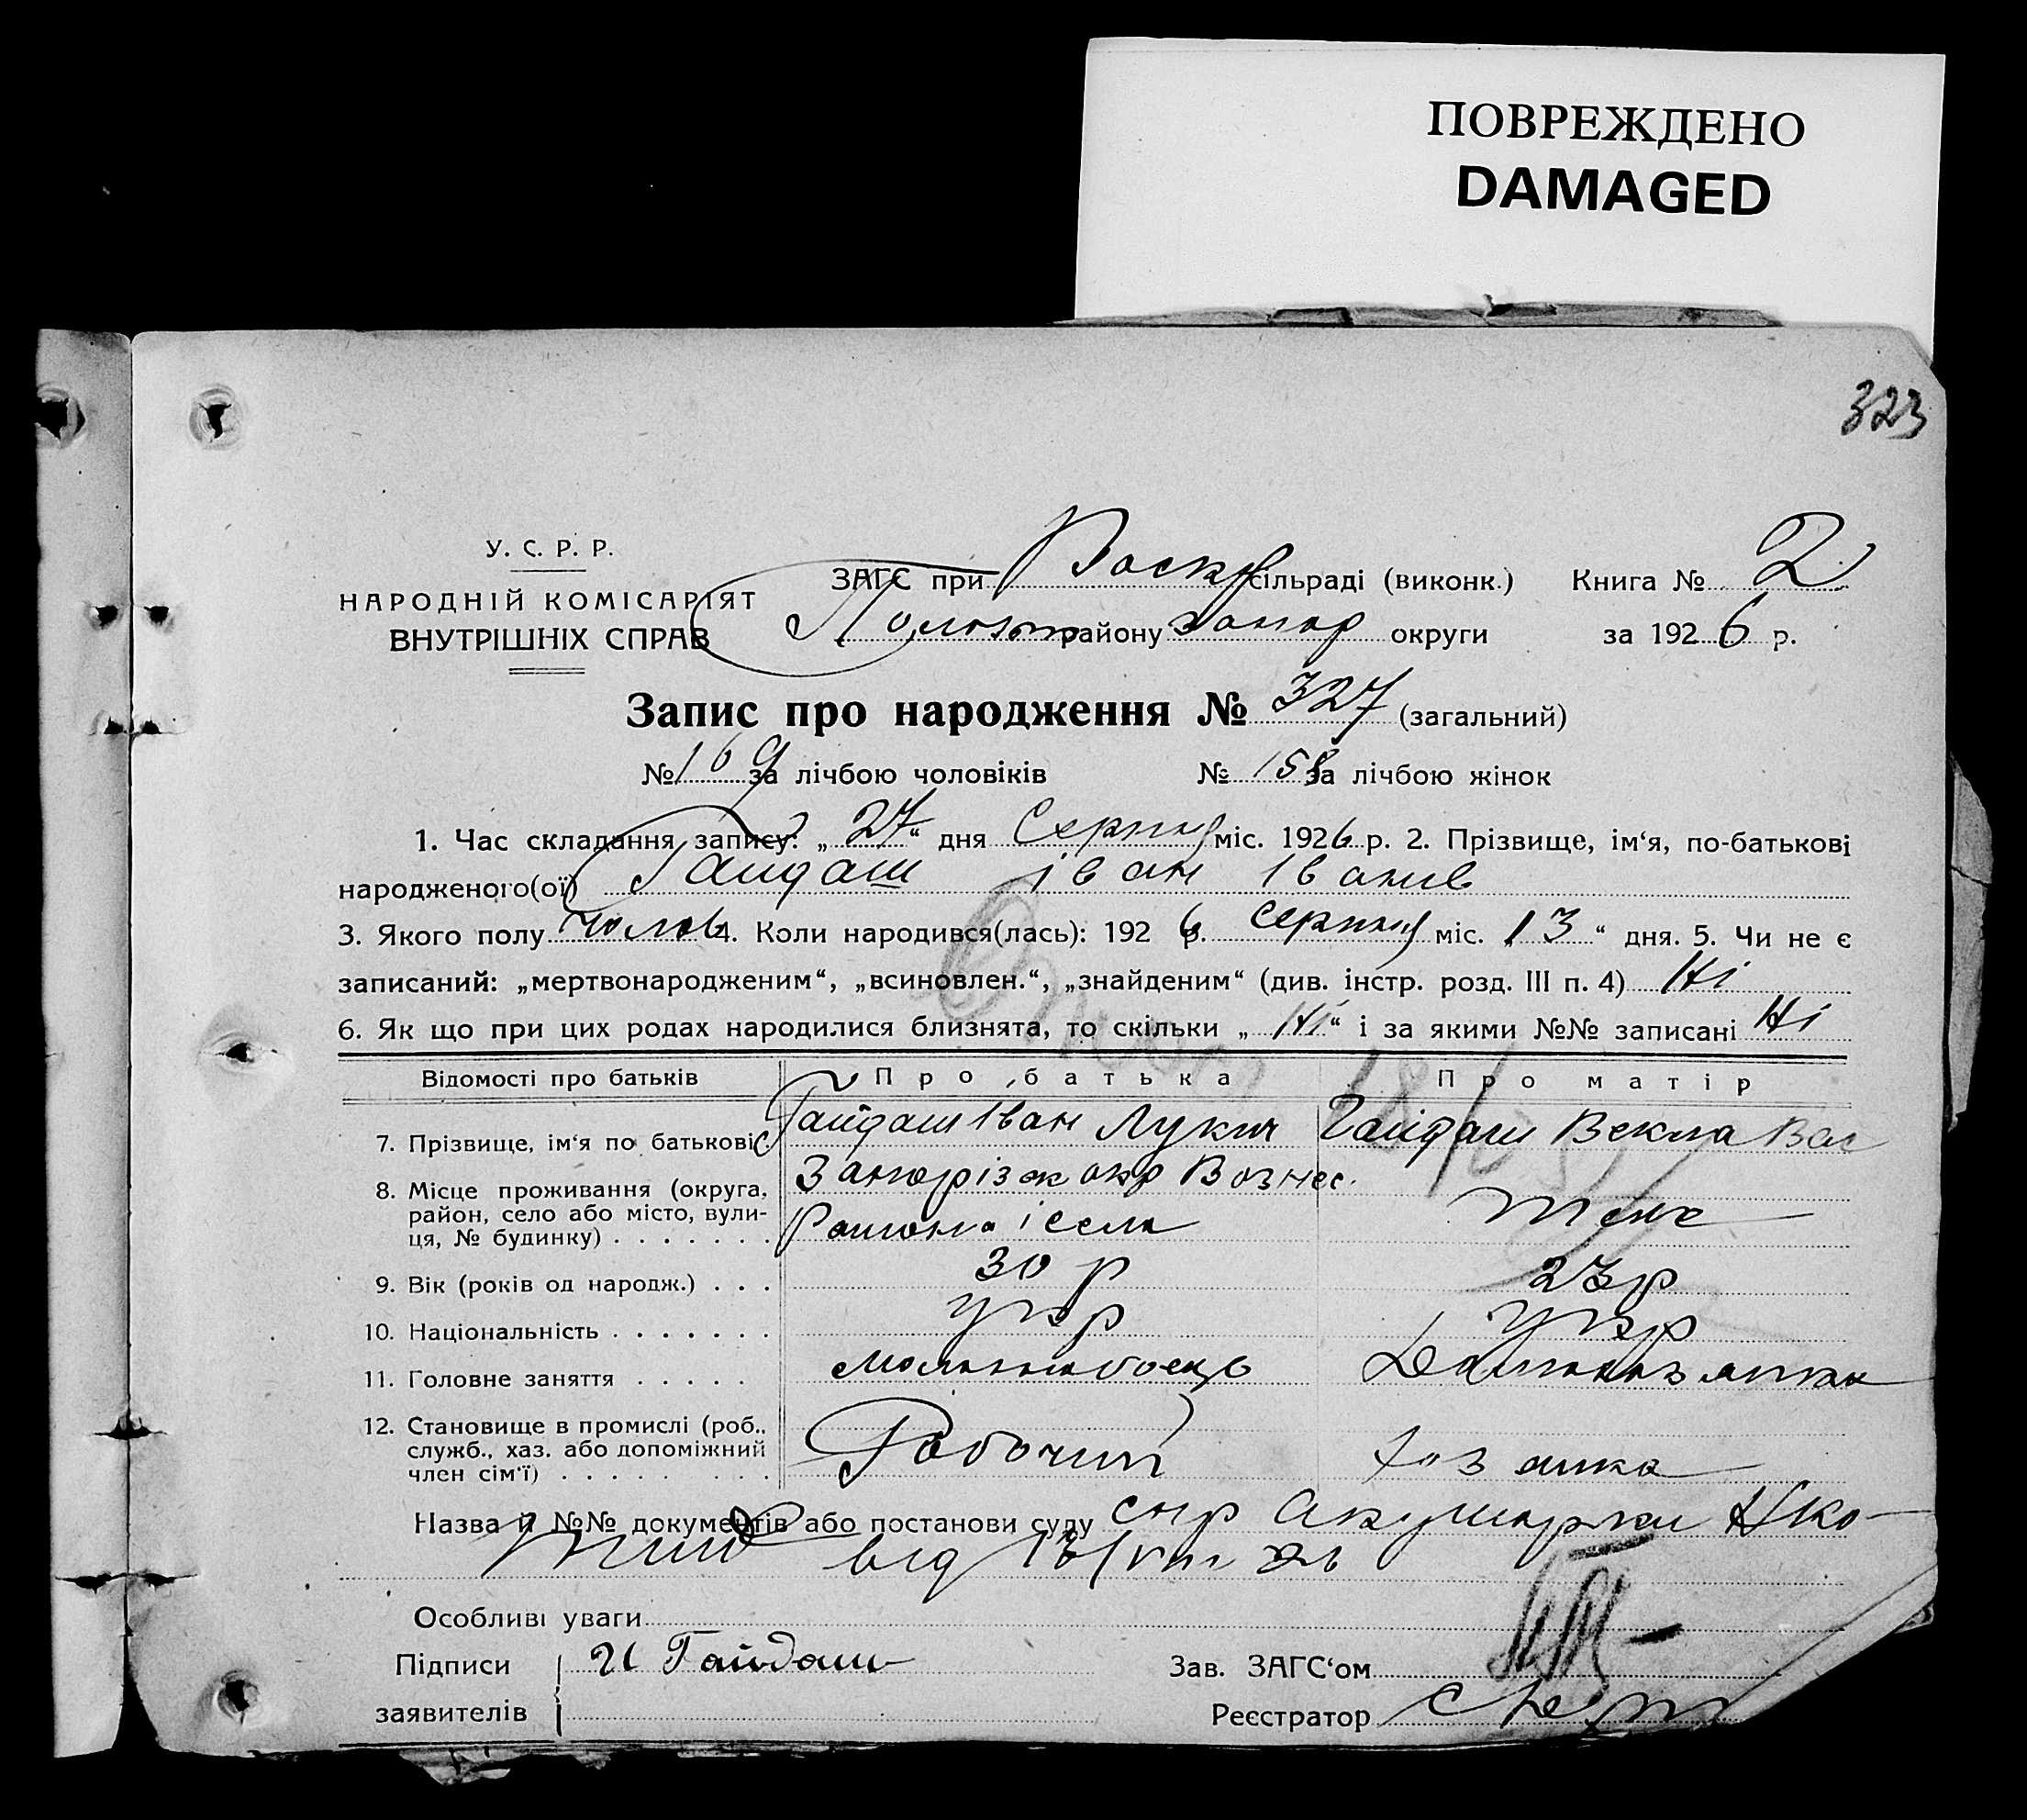 ПОВРЕЖДЕНО
DAMAGED
323
У. С. Р. Р.
НАРОДНІЙ КОМІСАРІЯТ
ВНУТРІШНІХ СПРАВ
ЗАГС при Воскр сільраді (виконк.) Книга № 2
району Запор округи за 1926 р.
Запис про народження № 327 (загальний)
№ 169 за лічбою чоловіків № 158 за лічбою жінок
1. Час складання запису: „27“ дня Серпня міс. 1926 р. 2. Прізвище, ім‘я, по-батькові
народженого(ої) Гайдаш іван Іванів
3. Якого полу чолов 4. Коли народився(лась): 1926 р. серпня міс. „13“ дня. 5. Чи не є
записаний: „мертвонародженим“, „всиновлен.“, „знайденим“ (див. інстр. розд. III п. 4) Ні
6. Як що при цих родах народилися близнята, то скільки „Ні“ і за якими №№ записані Ні
Відомості про батьків Про батька Про матір
7. Прізвище, ім‘я по батькові Гайдаш Іван Лукич Гайдаш Векла Вас
8. Місце проживання (округа, район, село або місто, вулиця, № будинку) . . . . . . . Запоріж окр Вознес.
Района і села Теж
9. Вік (років од народж.) . . . 30 р 23 р
10. Національність . . . . . . . укр укр
11. Головне заняття . . . . . Домохозяйка
12. Становище в промислі (роб., служб., хаз. або допоміжний член сім‘ї) . . . . . . . . Рабочий хозяйка
Назва й №№ документів або постанови суду Акушерки
від
Особливі уваги
Підписи заявителів И Гайдаш
Зав. ЗАГС‘ом
Реєстратор